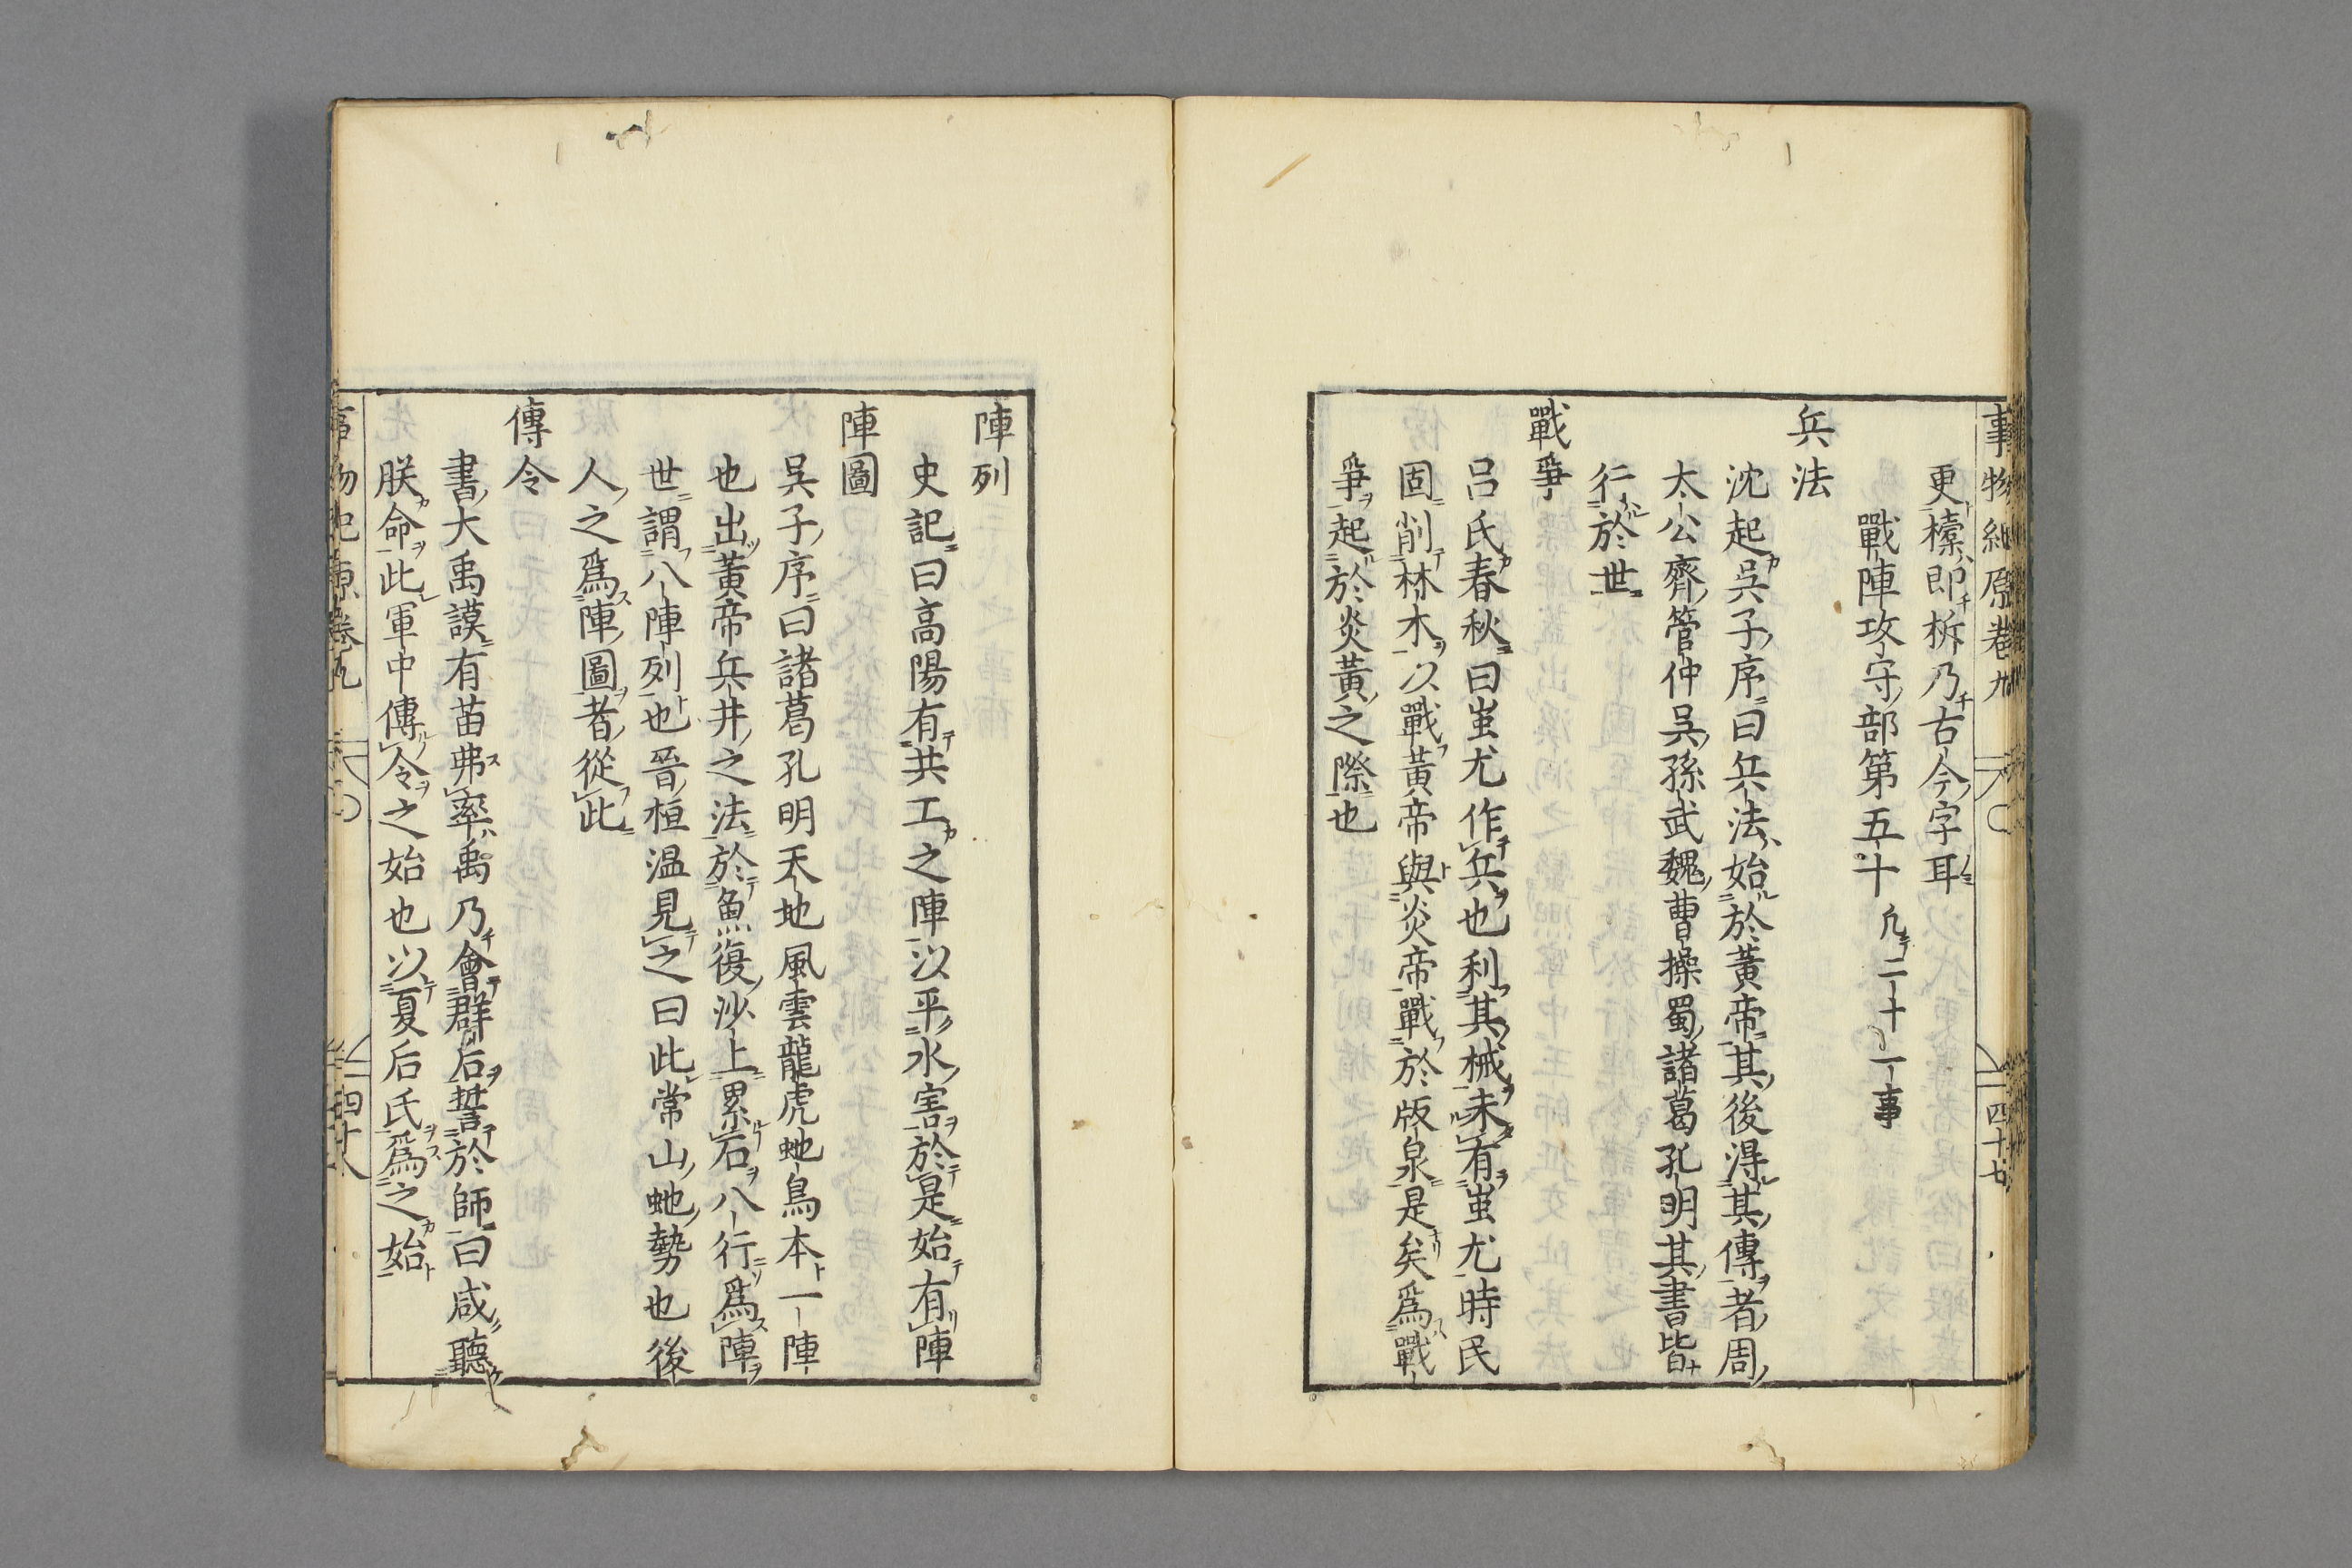 事物紀原卷九
四十七
更㯱即柝乃古今字耳
戰陣攻守部第五十 凡二十一事
兵法
沈起吳子序曰兵法始於黃帝其後得其傳者周
太公齊管仲吳孫武魏曹操蜀諸葛孔明其書皆
行於世
戰爭
呂氏春秋曰蚩尤作兵也利其械未有蚩尤時民
固削林木以戰黃帝與炎帝戰於版泉是矣爲戰
爭起於炎黃之際也
陣列
史記曰高陽有共工之陣以平水害於是始有陣
陣圖
吳子序曰諸葛孔明天地風雲龍虎虵鳥本一陣
也出黃帝兵井之法於魚復沙上累石八行爲陣
世謂八陣列也晉桓温見之曰此常山虵勢也後
人之爲陣圖者從此
傳令
書大禹謨有苗弗率禹乃會群后誓於師曰咸聽
朕命此軍中傳令之始也以夏后氏爲之始